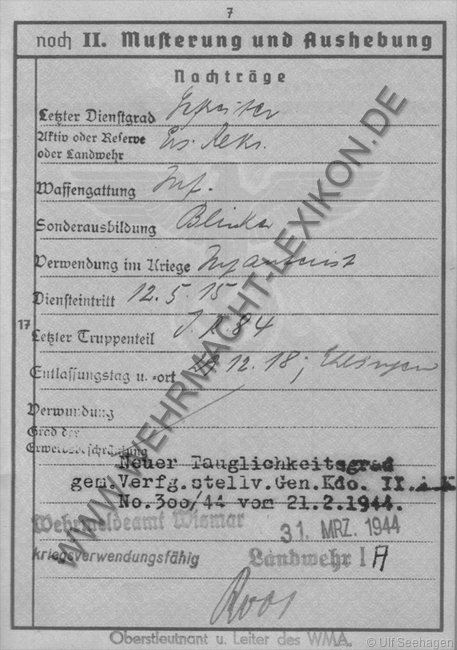 7
noch II. Musterung und Aushebung
Nachträge
Letzter Dienstgrad Gefreiter
Aktiv oder Reserve
oder Landwehr Ers. Rekr.
Waffengattung Inf.
Sonderausbildung Blinker
Verwendung im Kriege
Diensteintritt 12.5.15
17
Letzter Truppenteil I.R. 84
Entlassungstag u. -ort 12.18;
Verwundung
Grad der
Erwerbsbeschränkung
Neuer Tauglichkeitsgrad
gem. Verfg. stellv. Gen. Kdo. II. A.K
No. 300/44 vom 21.2.1944.
Wehrmeldeamt Wismar
31. MRZ. 1944
kriegsverwendungsfähig
Landwehr I A
Roos
Oberstleutnant u. Leiter des WMA.
WWW.WEHRMACHT-LEXIKON.DE
© Ulf Seehagen